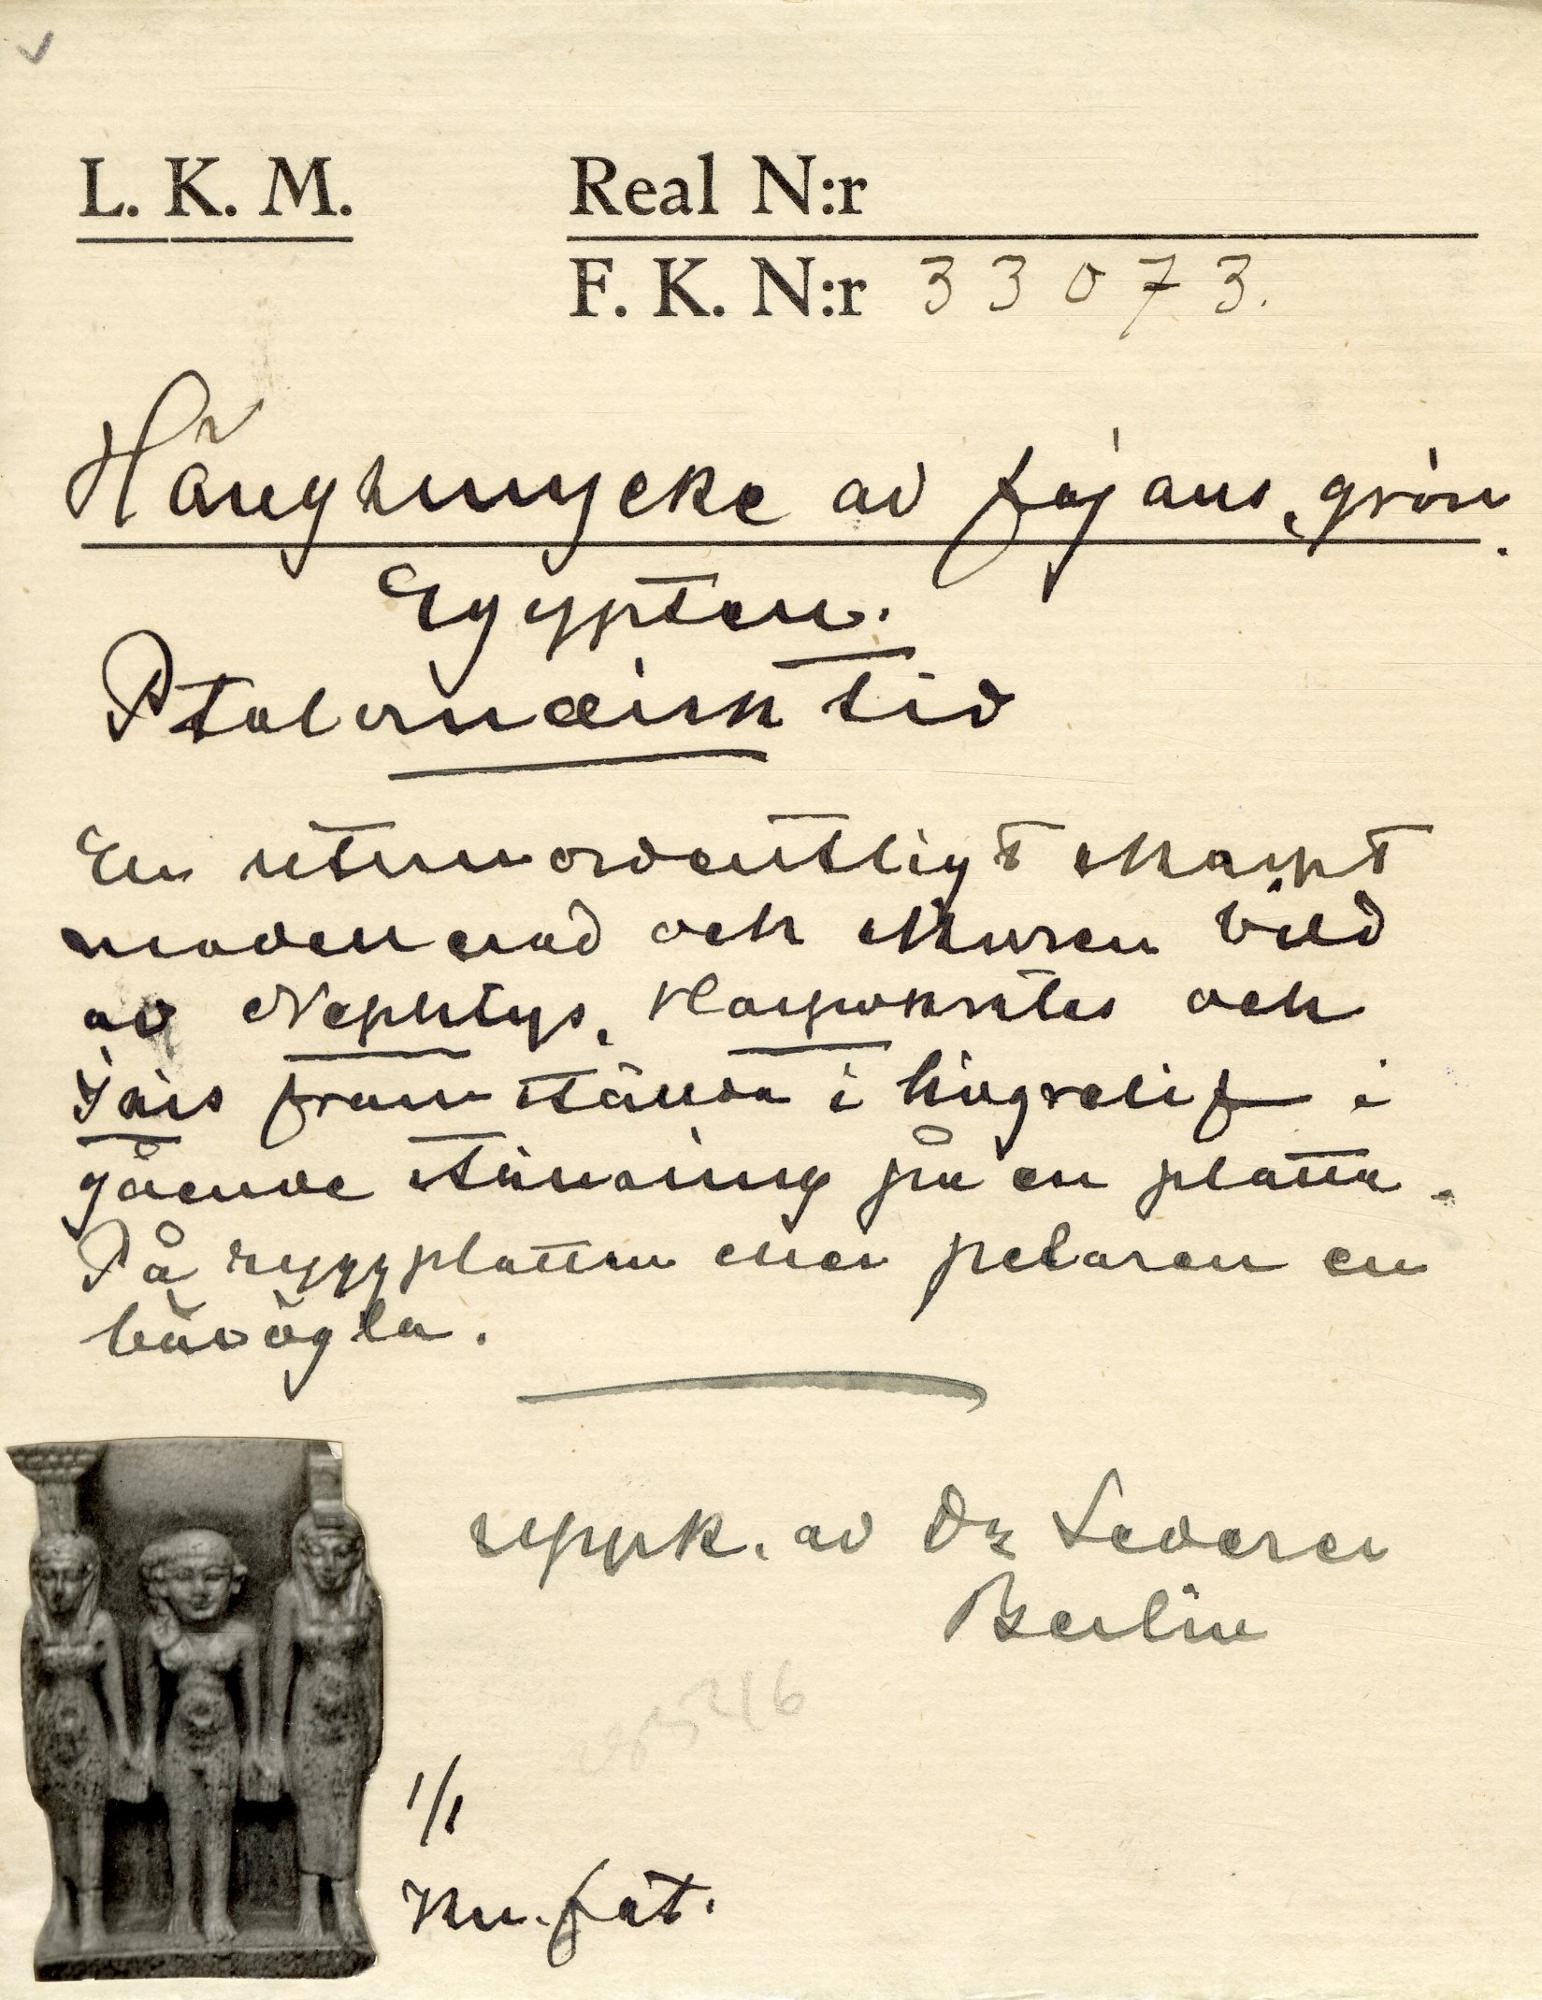 L. K. M.
Real N:r
F. K. N:r 33073.
Hängsmycke av fajans, grön.
Egypten.
Ptolemæisk tid
En utomordentligt skarpt
modellerad och skuren bild
av Nephtys, Harpokrates och
Isis framställda i högrelief i
gående ställning på en platta.
På ryggplattan eller pelaren en
bärögla.
uppk. av Dr Lederer
Berlin
1/1
Kn. fat.